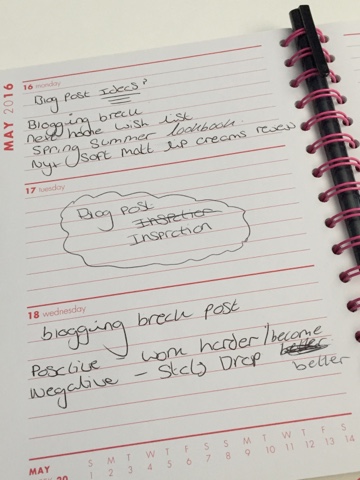 MAY 2016
16 monday
Blog Post Ideas?
Blogging break
new home wish list
Spring Summer lookbook.
Nyx Soft matt lip creams review
17 tuesday
Blog Post:
Insprction
Insprction
18 wednesday
blogging break post
Positive - work harder / become
better
Negative - Stats Drop better
MAY S M T W T F S S M T W T F S
1 2 3 4 5 6 7 8 9 10 11 12 13 14